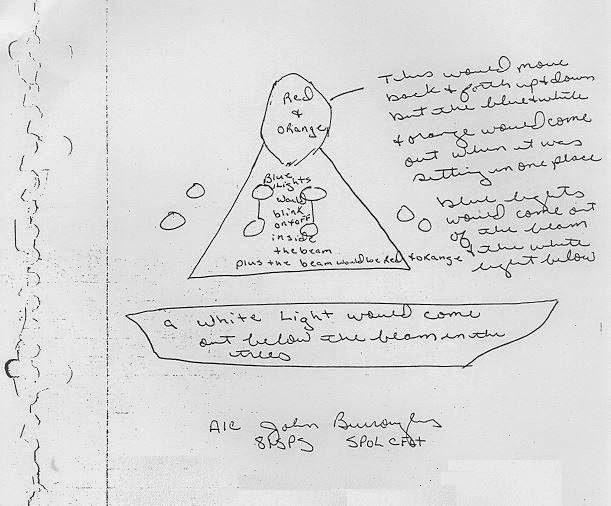 Red
&
Orange
This would move
back & forth up & down
but the blue & white
& orange would come
out when it was
setting in one place
Blue lights
would come out
of the beam
& the white
light below
Blue
Lights
would
blink
on & off
inside
the beam
plus the beam would be Red & Orange
a white Light would come
out below the beam in the
trees
A1C John Burroughs
81SPS